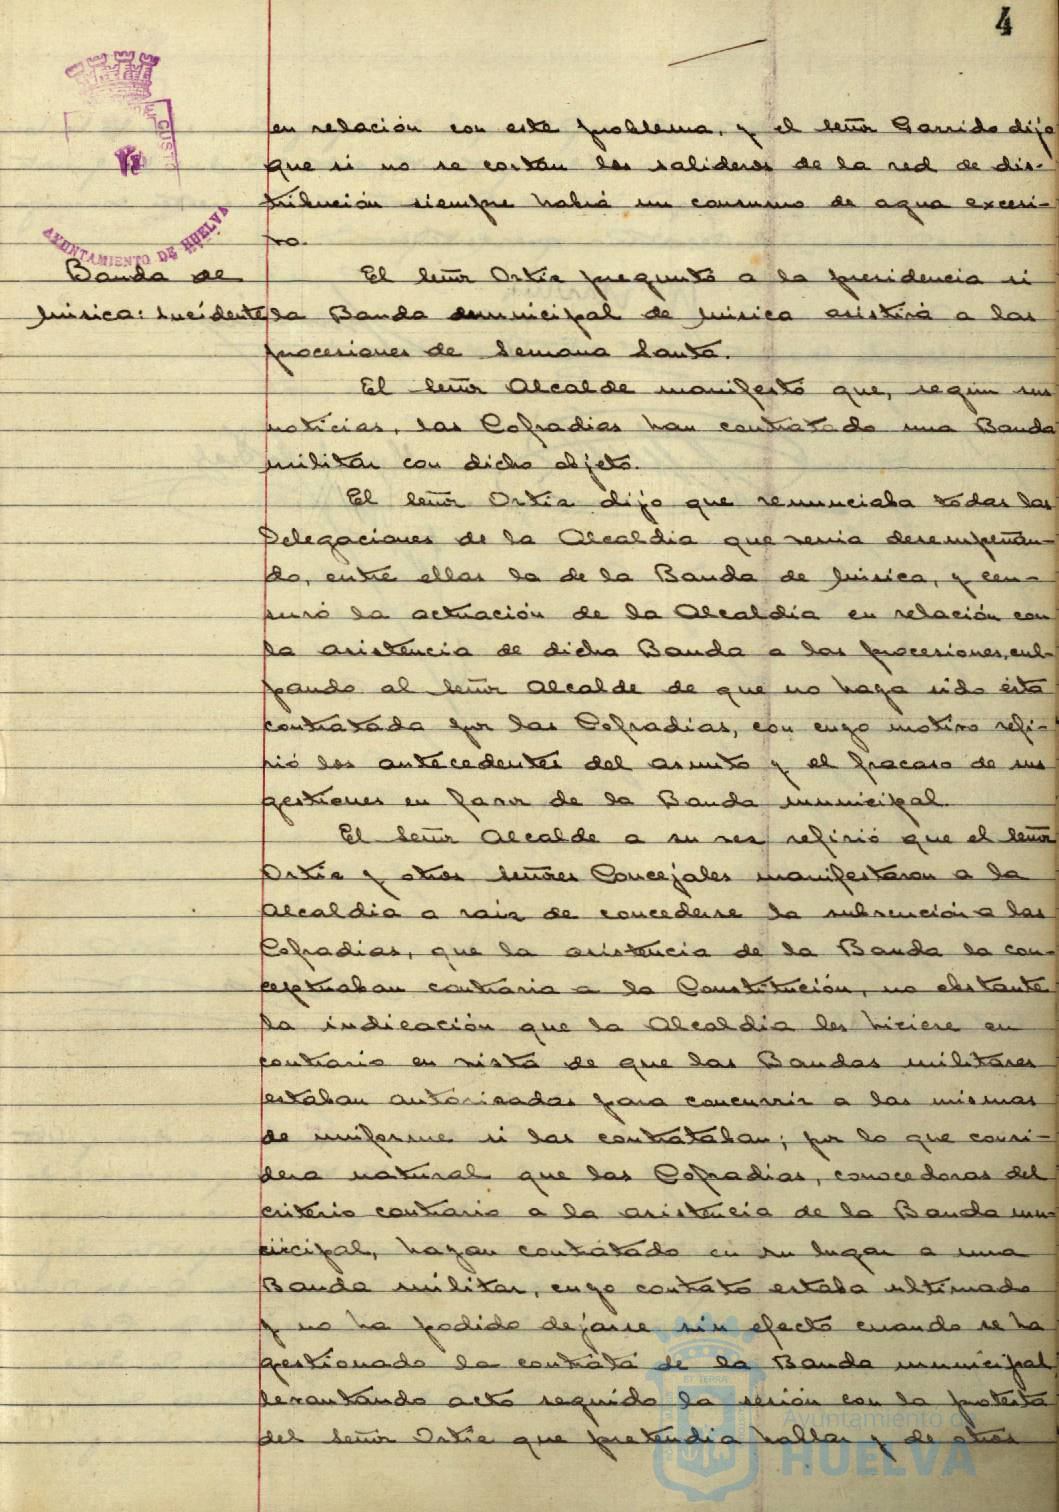 4
en relación con este problema, y el Señor Garrido dijo
que si no se cortan los salideros de la red de dis-
tribución siempre habrá un consumo de agua excesi-
vo.
AYUNTAMIENTO DE HUELVA
Banda de
Música: Incidente
El Señor Ortiz preguntó a la presidencia si
la Banda municipal de Música asistirá a las
procesiones de Semana Santa.
El Señor Alcalde manifestó que, según sus
noticias, las Cofradias han contratado una Banda
militar con dicho objeto.
El Señor Ortiz dijo que renunciaba todas las
Delegaciones de la Alcaldia que venia desempeñan-
do, entre ellas la de la Banda de Música, y cen-
suró la actuación de la Alcaldía en relación con
la asistencia de dicha Banda a las procesiones, cul-
pando al Señor Alcalde de que no haya sido ésta
contratada por las Cofradias, con cuyo motivo refi-
rió los antecedentes del asunto y el fracaso de sus
gestiones en favor de la Banda municipal.
El Señor Alcalde a su vez refirió que el Señor
Ortiz y otros Señores Concejales manifestaron a la
Alcaldia a raiz de concederse la subvención a las
Cofradias, que la asistencia de la Banda la con-
ceptuaban contraria a la Constitución, no obstante
la indicación que la Alcaldia les hiciese en
contrario en vista de que las Bandas militares
estaban autorizadas para concurrir a las mismas
de uniforme si las contrataban; por lo que consi-
dera natural que las Cofradias, conocedoras del
criterio contrario a la asistencia de la Banda mu-
nicipal, hayan contratado en su lugar a una
Banda militar, cuyo contrato estaba ultimado
y no ha podido dejarse sin efecto cuando se ha
gestionado la contrata de la Banda municipal
levantando acto seguido la sesión con la protesta
del Señor Ortiz que pretendia hablar y de otros
Ayuntamiento de
HUELVA